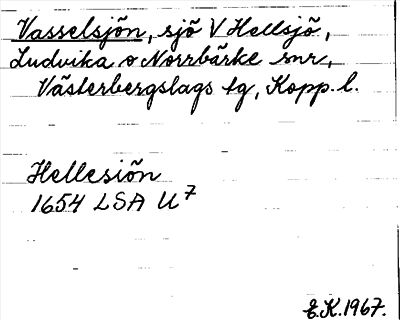 Vasselsjön, sjö V Hellsjö,
Ludvika o Norrbärke snr,
Västerbergslags tg, Kopp. l.
Hellesiön
1654 LSA U7
E.K. 1967.